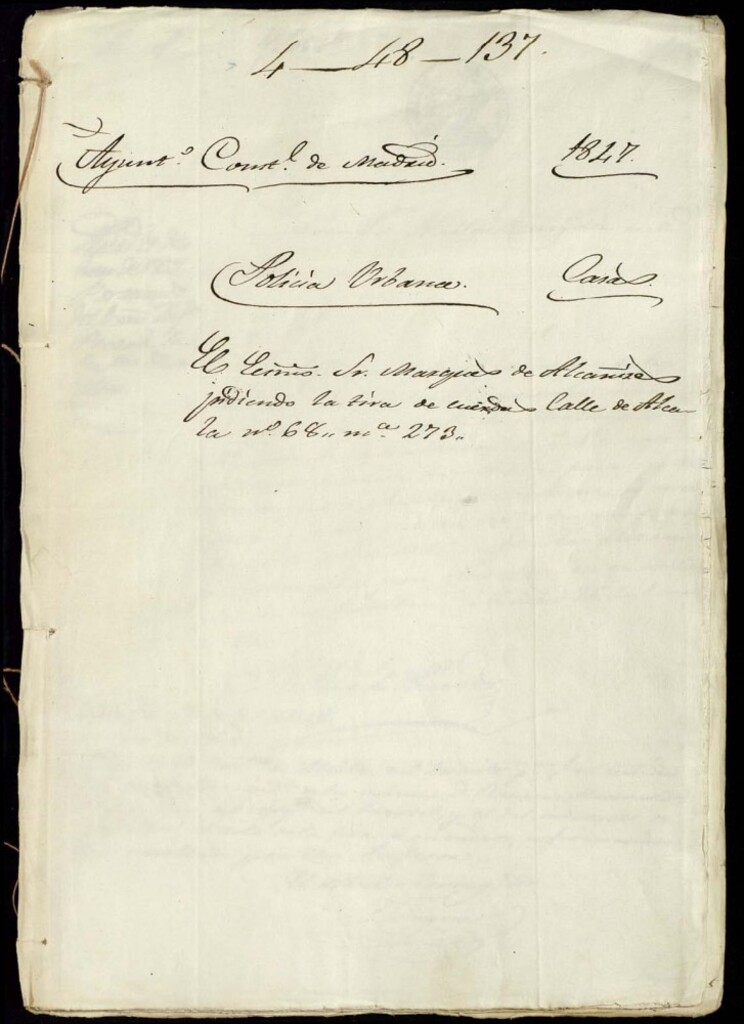 4—48—137.
Ayunt.º Const.l de Madrid.
1847.
Policia Urbana.
Casas.
El Ecsmo. Sr. Marques de Alcañizes
pidiendo la tira de cuerdas Calle de Alca-
la nº. 68,, m.a 273,,